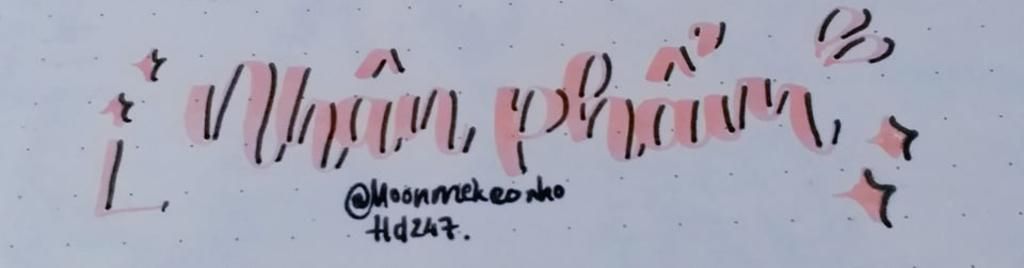 Nhân phẩm
@Moonmekeonho
Hd247.